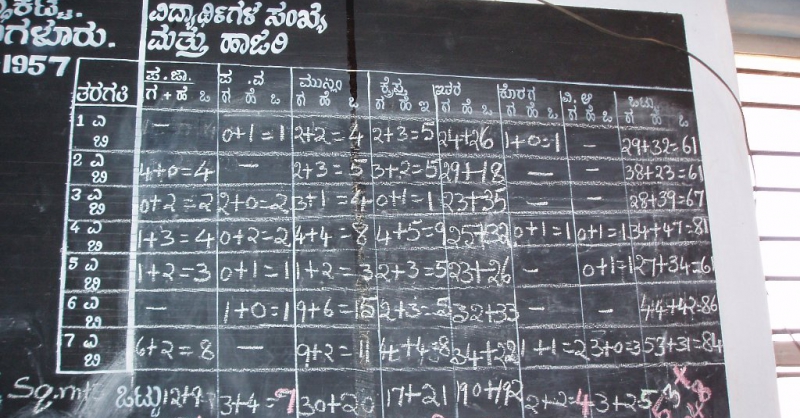 ವಿದ್ಯಾರ್ಥಿಗಳ ಸಂಖ್ಯೆ
ಮತ್ತು ಹಾಜರಿ
1957
ತರಗತಿ ಪ.ಜಾ. ಪ.ವ ಮುಸ್ಲಿಂ ಇತರ ಕೊರಗ ಒಟ್ಟು
ಗ + ಹೆ ಒ ಗ ಹೆ ಒ ಗ ಹೆ ಒ ಗ ಹೆ ಇ ಗ ಹೆ ಒ ಗ ಹೆ ಒ ಗ ಹೆ ಒ ಗ ಹೆ ಒ
1 ಎ ಬಿ — 0+1=1 2+2=4 2+3=5 24+26 1+0=1 — 29+32=61
2 ಎ ಬಿ 4+0=4 — 2+3=5 3+2=5 29+18 — — 38+23=61
3 ಎ ಬಿ 0+2=2 2+0=2 3+1=4 0+1=1 23+35 — — 28+39=67
4 ಎ ಬಿ 1+3=4 0+2=2 4+4=8 4+5=9 25+32 0+1=1 0+1=1 34+47=81
5 ಎ ಬಿ 1+2=3 0+1=1 1+2=3 2+3=5 23+26 — 0+1=1 27+34=61
6 ಎ ಬಿ — 1+0=1 9+6=15 2+3=5 32+33 — — 44+42=86
7 ಎ ಬಿ 6+2=8 — 9+2=11 4+4=8 34+22 1+1=2 3+0=3 53+31=84
Sq.mts ಒಟ್ಟು 3+4=7 30+20 17+21 190+192 2+2=4 3+2=5